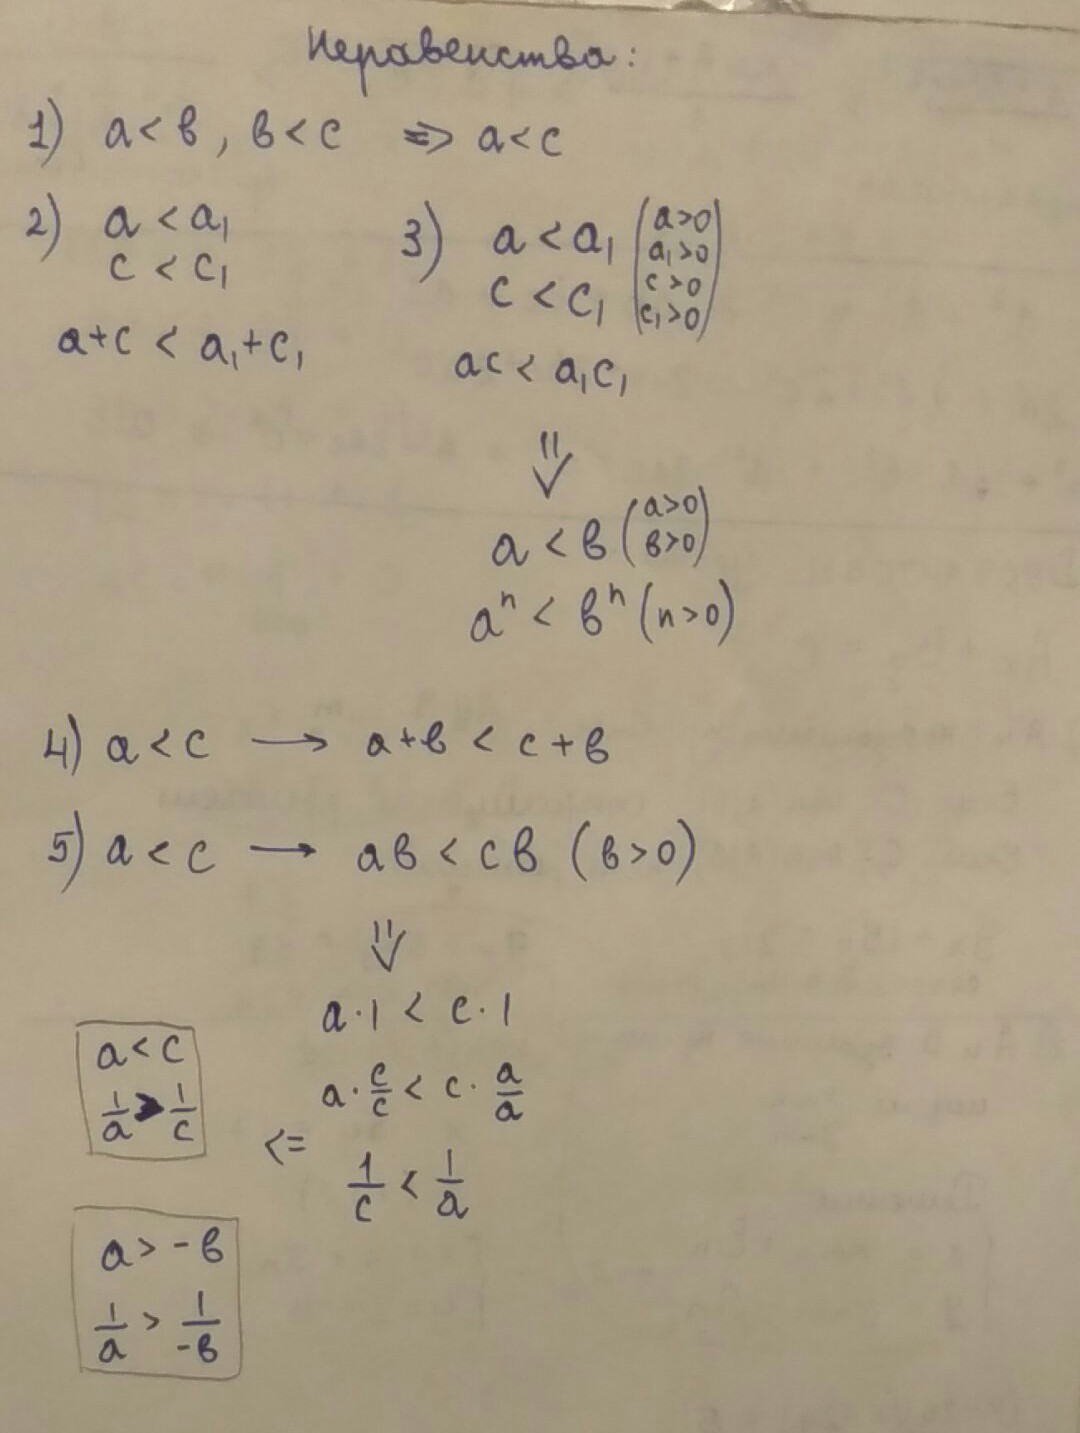 Неравенства:
1) a < в , в < c => a < c
2) a < a₁
c < c₁
a+c < a₁+c₁
3) a < a₁ (a>0
a₁>0
c < c₁ c>0
c₁>0)
ac < a₁c₁
⇓
a < в (a>0
в>0)
aⁿ < вⁿ (n>0)
4) a < c → a+в < c+в
5) a < c → aв < cв (в>0)
⇓
a·1 < c·1
a·c/c < c·a/a
1/c < 1/a
<=
a < c
1/a > 1/c
a > -в
1/a > 1/-в